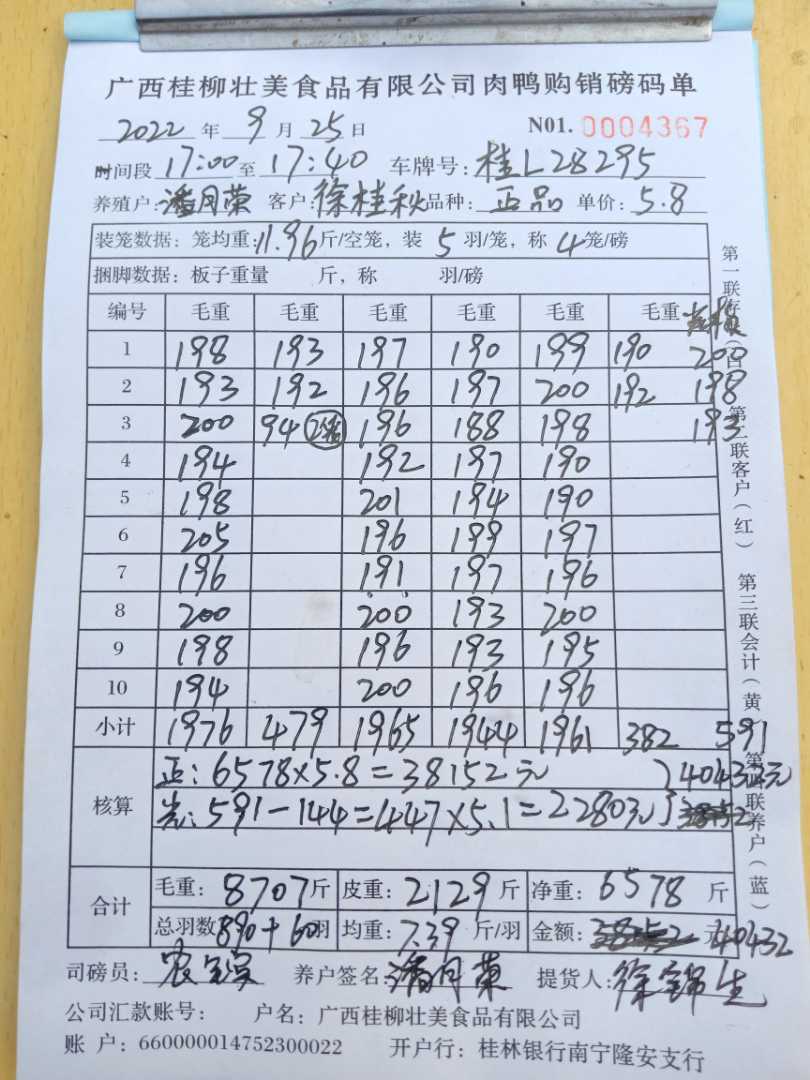 广西桂柳壮美食品有限公司肉鸭购销磅码单
2022 年 9 月 25 日 N01. 0004367
时间段 17:00 至 17:40 车牌号: 桂L28295
养殖户: 潘月荣 客户: 徐桂秋 品种: 正品 单价: 5.8
装笼数据: 笼均重: 11.96 斤/空笼, 装 5 羽/笼, 称 4 笼/磅
捆脚数据: 板子重量 斤, 称 羽/磅
编号 毛重 毛重 毛重 毛重 毛重 毛重
1 198 193 197 190 199 190 200
2 193 192 196 197 200 192 198
3 200 94 196 188 198 193
4 194 192 197 190
5 198 201 194 190
6 205 196 199 197
7 196 191 197 196
8 200 200 193 200
9 198 196 193 195
10 194 200 196 196
小计 1976 479 1965 1944 1961 382 591
核算 正: 6578×5.8=38152元
591-144=447×5.1=2280元
合计 毛重: 8707 斤 皮重: 2129 斤 净重: 6578 斤
总羽数 890+60 羽 均重: 7.39 斤/羽 金额: 40432 元
司磅员: 养户签名: 潘月荣 提货人: 徐锦生
公司汇款账号: 户名: 广西桂柳壮美食品有限公司
账 户: 660000014752300022 开户行: 桂林银行南宁隆安支行
第一联存 (白) 第二联客户(红) 第三联会计(黄) 第四联养户(蓝)